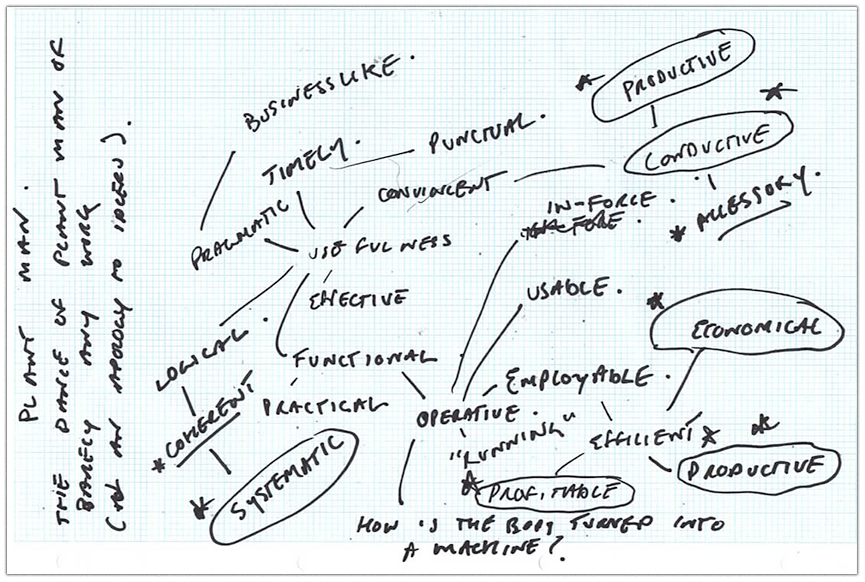 PLANT MAN.
THE DANCE OF PLANT MAN OR
BARELY ANY WORK
AN APOLOGY TO
BUSINESSLIKE.
PRODUCTIVE
TIMELY.
PUNCTUAL.
CONDUCTIVE
CONVINCENT
PRAGMATIC
IN-FORCE
* ACCESSORY.
USEFULNESS
EFFECTIVE
USABLE.
ECONOMICAL
LOGICAL.
FUNCTIONAL
EMPLOYABLE.
* COHERENT
PRACTICAL
OPERATIVE.
"RUNNING"
EFFICIENT
SYSTEMATIC
PROFITABLE
PRODUCTIVE
HOW IS THE BODY TURNED INTO
A MACHINE?